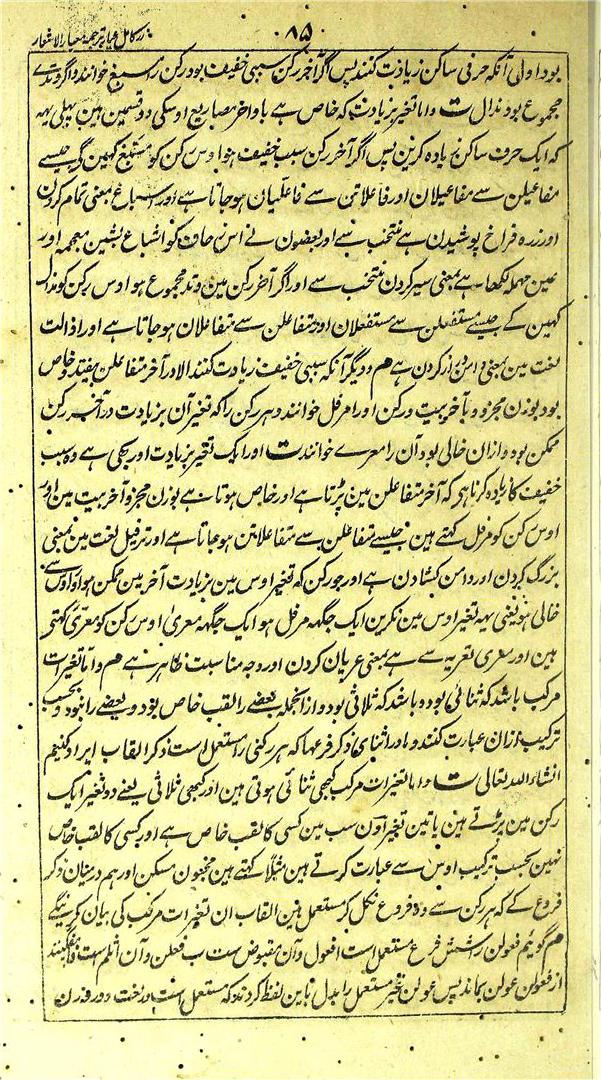 ۸۵
زر کامل عیار ترجمہ معیار الاشعار
بود اولی آنکہ حرفی ساکن زیادت کنند پس اگر آخر رکن سببی خفیف بود رکن را مسبغ خوانند و اگر وتدے
مجموع بود مذال ت واما تغیر بزیادت کہ خاص ہے باواخر مصاریع اوسکی دو قسمین ہین پہلی یہہ
کہ ایک حرف ساکن زیادہ کرین پس اگر آخر رکن سبب خفیف ہو اوس رکن کو مسبغ کہین گے جیسے
مفاعیلن سے مفاعیلان اور فاعلاتن سے فاعلیان ہوجاتا ہے اور اسباغ بمعنی تمام کردن
اور زرہ فراخ پوشیدن ہے منتخب سے اور بعضون نے اس زحاف کو اشباع بشین معجمہ اور
عین مہملہ لکھا ہے بمعنی سیر کردن منتخب سے اور اگر آخر رکن مین وتد مجموع ہو اوس رکن کو مذال
کہین گے جیسے مستفعلن سے مستفعلان اور متفاعلن سے متفاعلان ہوجاتا ہے اور اذالت
لغت مین بمعنی دامن دراز کردن ہے م و دیگر آنکہ سببی خفیف زیادت کنند الا در آخر متفاعلن نیفتد و خاص
بود بوزن مجزو و بآخر بیت و رکن اور امرفل خوانند و ہر رکن را کہ تغیر آن بزیادت در آخر رکن
ممکن بود و ازان خالی بود آن را معرے خوانند ت اور ایک تغیر بزیادت اور بھی ہے وہ سبب
خفیف کا زیادہ کرنا ہی کہ آخر متفاعلن مین پڑتا ہے اور خاص ہوتا ہے بوزن مجزو آخر بیت مین اور
اوس رکن کو مرفل کہتے ہین جیسے متفاعلن سے متفاعلاتن ہوجاتا ہے اور ترفیل لغت مین بمعنی
بزرگ کردن اور دامن کشادن ہے اور جو رکن کہ تغیر اوس مین بزیادت آخر مین ممکن ہو اور اوس سے
خالی ہو یعنی یہہ تغیر اوس مین نکرین ایک جگہہ مرفل ہو ایک جگہہ معریٰ اوس رکن کو معریٰ کہتی
ہین اور معری تعریہ سے ہے بمعنی عریان کردن اور وجہ مناسبت ظاہر ہے م واما تغیرات
مرکب باشد کہ ثنائی بود و باشد کہ ثلاثی بود و از انجملہ بعضے را لقب خاص بود و بعضے را نبود و بحسب
ترکیب ازان عبارت کنند و ما در اثنای ذکر فرعہا کہ ہر رکنی را مستعمل است ذکر القاب ایراد کنیم
انشاء اللہ تعالی ت واما تغیرات مرکب کبھی ثنائی ہوتی ہین اور کبھی ثلاثی یعنے دو تغیر ایک
رکن مین پڑتے ہین یا تین تغیر اون سب مین کسی کا لقب خاص ہے اور کسی کا لقب خاص
نہین بحسب ترکیب اوس سے عبارت کرتے ہین مثلاً کہتے ہین مخبون مسکن اور ہم درمیان ذکر
فروع کے کہ ہر رکن سے وہ فروع نکل کر مستعمل ہین القاب ان تغیرات مرکب کی بیان کرینگے
م گوئیم فعولن را شش فرع مستعمل است ا فعول و آن مقبوض ست ب فعلن و آن اثلم است
از فعولن عولن بماند پس عولن غیر مستعمل را بدل باین لفظ کردند کہ مستعمل است و